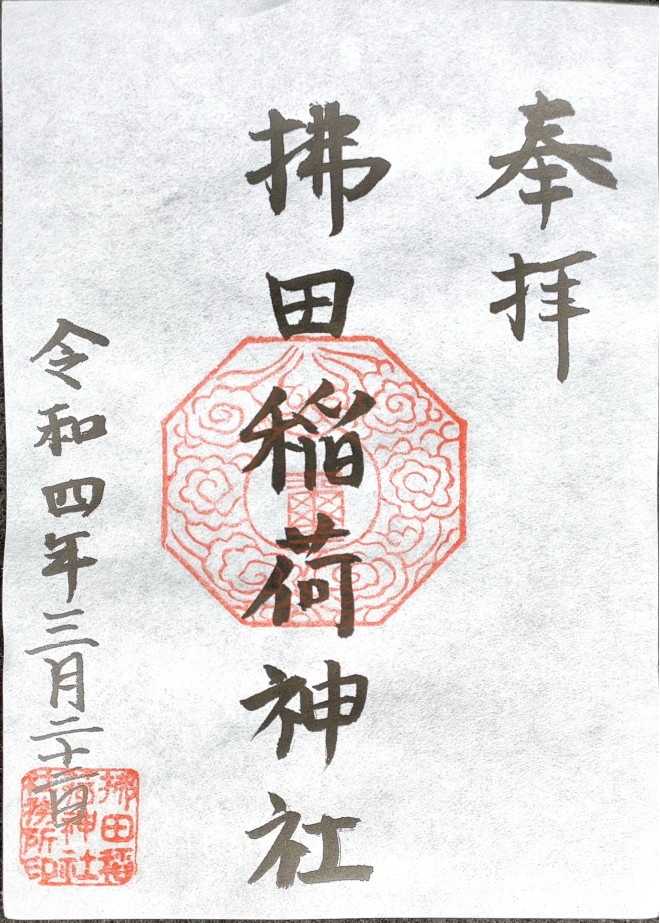 奉拝
拂田稲荷神社
令和四年三月二十二日
拂田稲
荷神社
社務所印